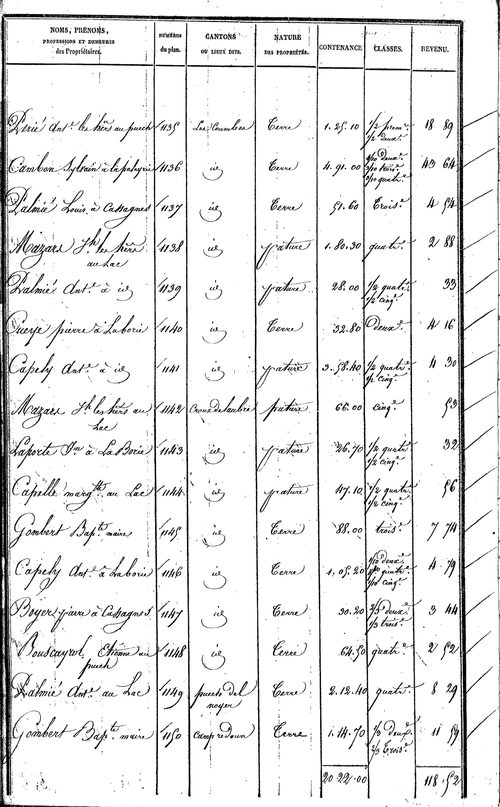 NOMS, PRÉNOMS, PROFESSIONS ET DEMEURES des Propriétaires. | NUMÉROS du plan. | CANTONS OU LIEUX DITS. | NATURE DES PROPRIÉTÉS. | CONTENANCE | CLASSES. | REVENU.
Périé Ant.e les hérs au puech 1135 Les Coumbes Terre 1. 25. 10 1/2 prem.e 1/2 deux.e 18 89
Cambon Sylvain à 1136 id Terre 4. 91. 00 deux.e trois.e quatr.e 43 64
Palmié Louis à Cassagnes 1137 id Terre 51. 60 Trois.e 4 54
Mazars Jh les hérs au Lac 1138 id pature 1. 80. 30 quatr.e 2 88
Palmié Ant.e à id 1139 id pature 28. 00 1/2 quatr.e 1/2 cinq.e 33
pierre à Laborie 1140 id Terre 32. 80 Deux.e 4 16
Capely Ant.e à id 1141 id pature 3. 58. 40 1/2 quatr.e 1/2 cinq.e 4 30
Mazars Jh les hérs au Lac 1142 pature 66. 00 cinq.e 53
Laporte Jn à La Borie 1143 id pature 26. 70 1/2 quatr 1/2 cinq.e 32
Capelle marg.te au Lac 1144 id pature 47. 10 1/2 quatr. 1/2 cinq.e 56
Gombert Bap.te maire 1145 id Terre 88. 00 trois.e 7 74
Capely Ant.e à Laborie 1146 id Terre 1. 05. 20 deux.e quatr.e cinq.e 4 79
Boyer pierre à Cassagnes 1147 id Terre 30. 20 2/3 deux.e 1/3 trois.e 3 44
Bouscayrol Etienne au puech 1148 id Terre 64. 50 quatr.e 2 52
Palmié Ant.e au Lac 1149 puech del noyer Terre 2. 12. 40 quatr.e 8 29
Gombert Bap.te maire 1150 camp redoun Terre 1. 14. 70 1/3 deux.e 2/3 Trois.e 11 59
20 22. 00 118. 52